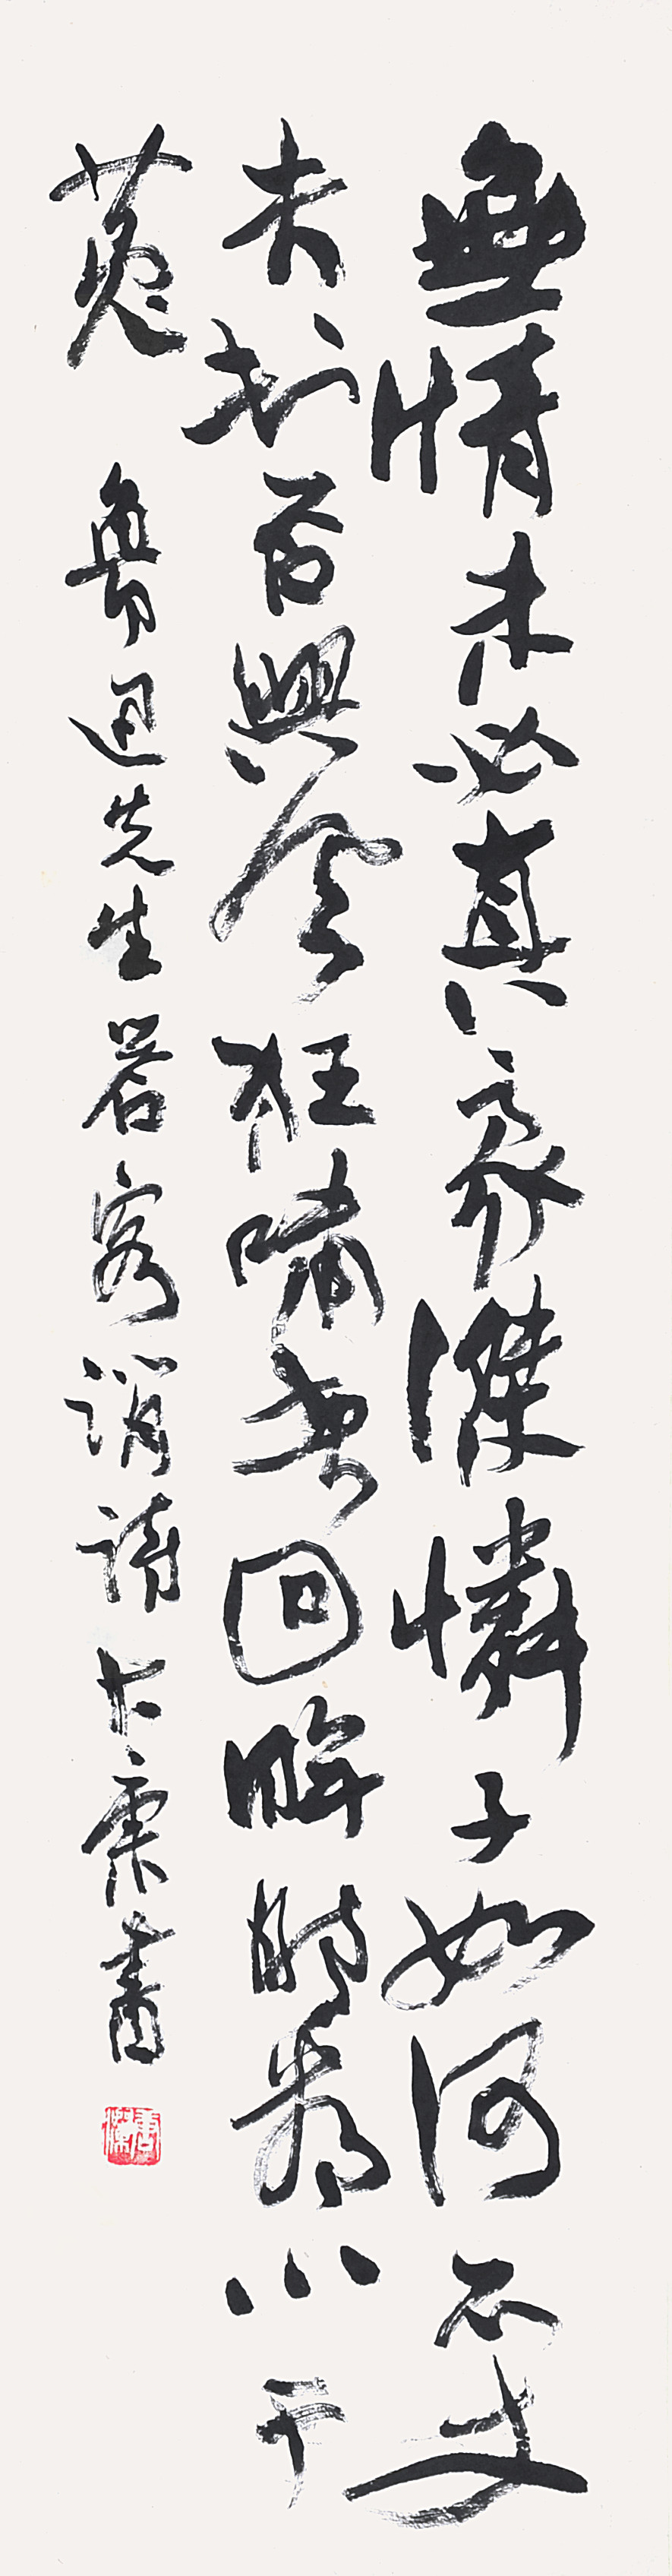 無情未必真豪傑憐子如何不丈
夫知否興風狂嘯者回眸時看小於
菟 魯迅先生答客誚詩 書